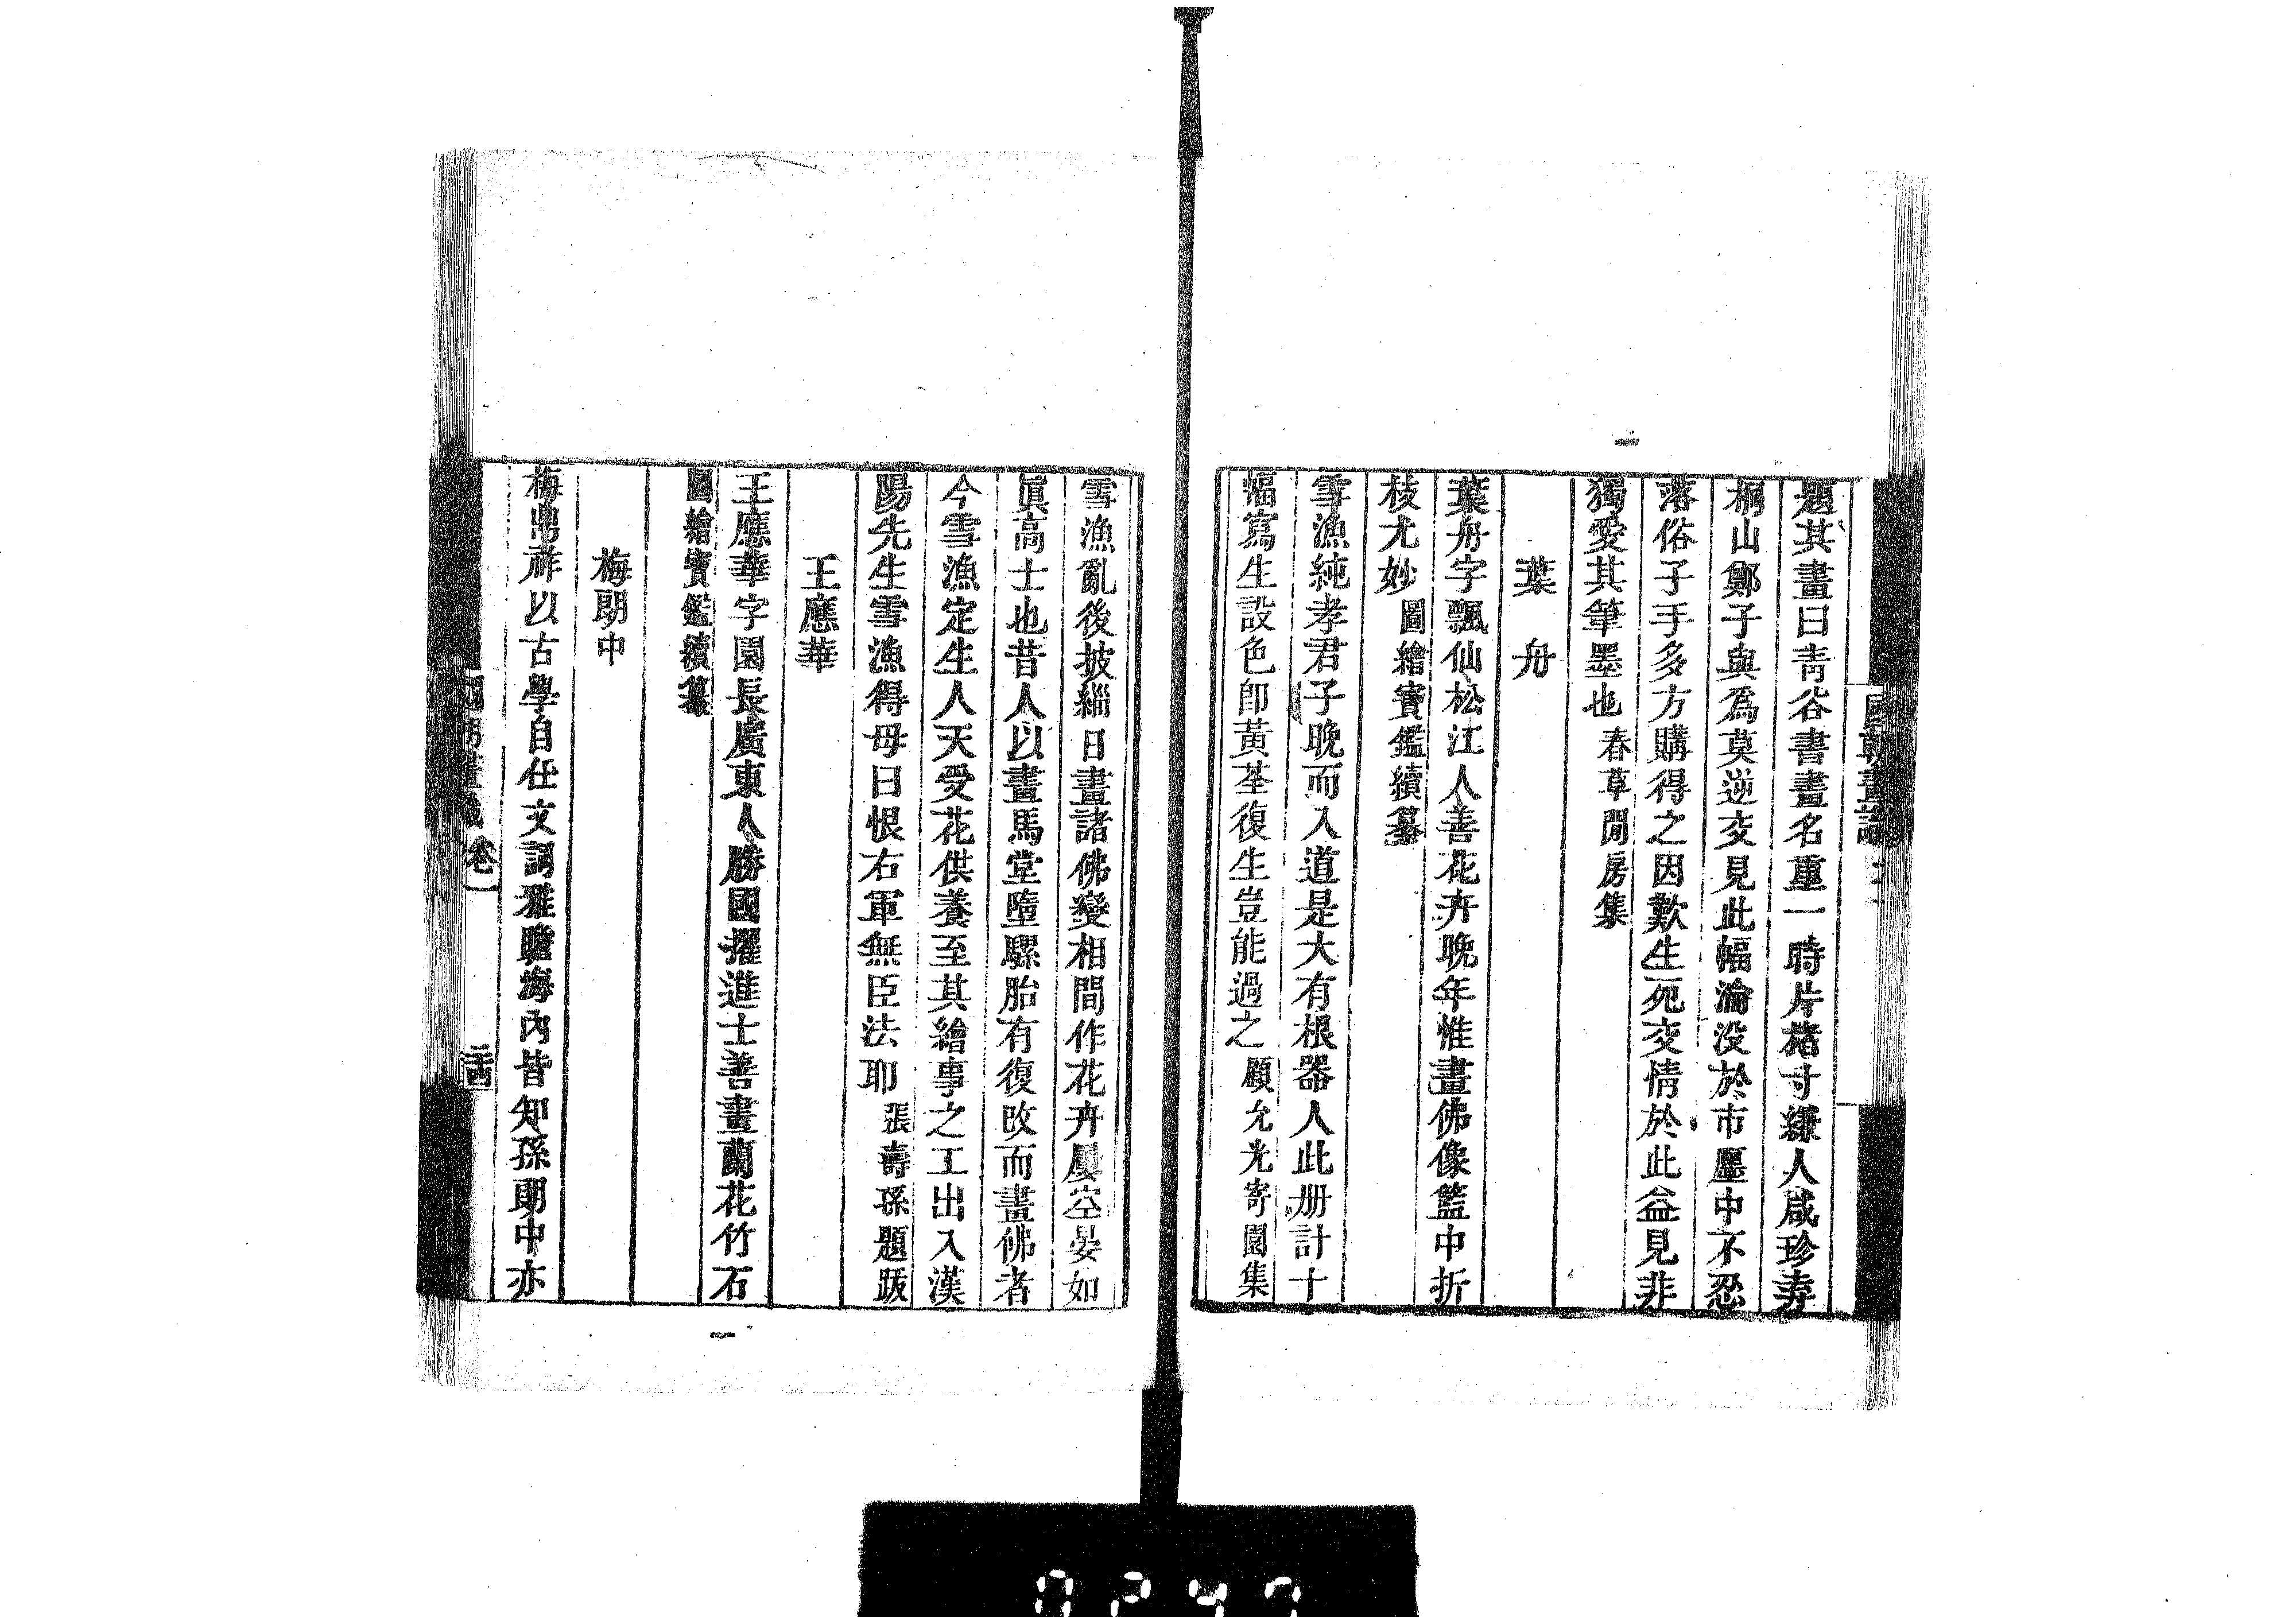 題其畫曰青谷書畫名重一時片楮寸縑人咸珍壽
桐山鄭子與爲莫逆交見此幅淪没於市廛中不忍
落俗子手多方購得之因歎生死交情於此益見非
獨愛其筆墨也 春草閒房集
葉舟
葉舟字飄仙松江人善花卉晚年惟畫佛像籃中折
枝尤妙 圖繪寶鑑續纂
雪漁純孝君子晚而入道是大有根器人此册計十
幅寫生設色卽黃荃復生豈能過之 顧允光寄園集
雪漁亂後披緇日畫諸佛變相間作花卉屢空晏如
眞高士也昔人以畫馬堂墮騾胎有復改而畫佛者
今雪漁定生人天受花供養至其繪事之工出入漢
陽先生雪漁得毋日恨右軍無臣法耶 張壽孫題跋
王應華
王應華字園長廣東人勝國擢進士善畫蘭花竹石
圖繪寶鑑續纂
梅朗中
梅鼎祚以古學自任文詞雅贍海內皆知孫朗中亦
國朝畫識 卷一 二十四
國朝畫識